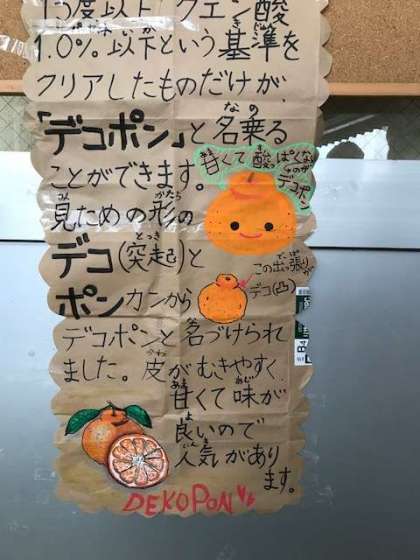 13度以上 クエン酸
1.0%以下という基準を
クリアしたものだけが、
「デコポン」と名乗る
ことができます。
甘くて酸っぱくないのがデコポン
見ための形の
デコ(突起)と
この出っ張りが
デコ(凸)
ポンカンから
デコポンと名づけられ
ました。皮がむきやすく、
甘くて味が
良いので
人気があり
ます。
DEKOPON
B4